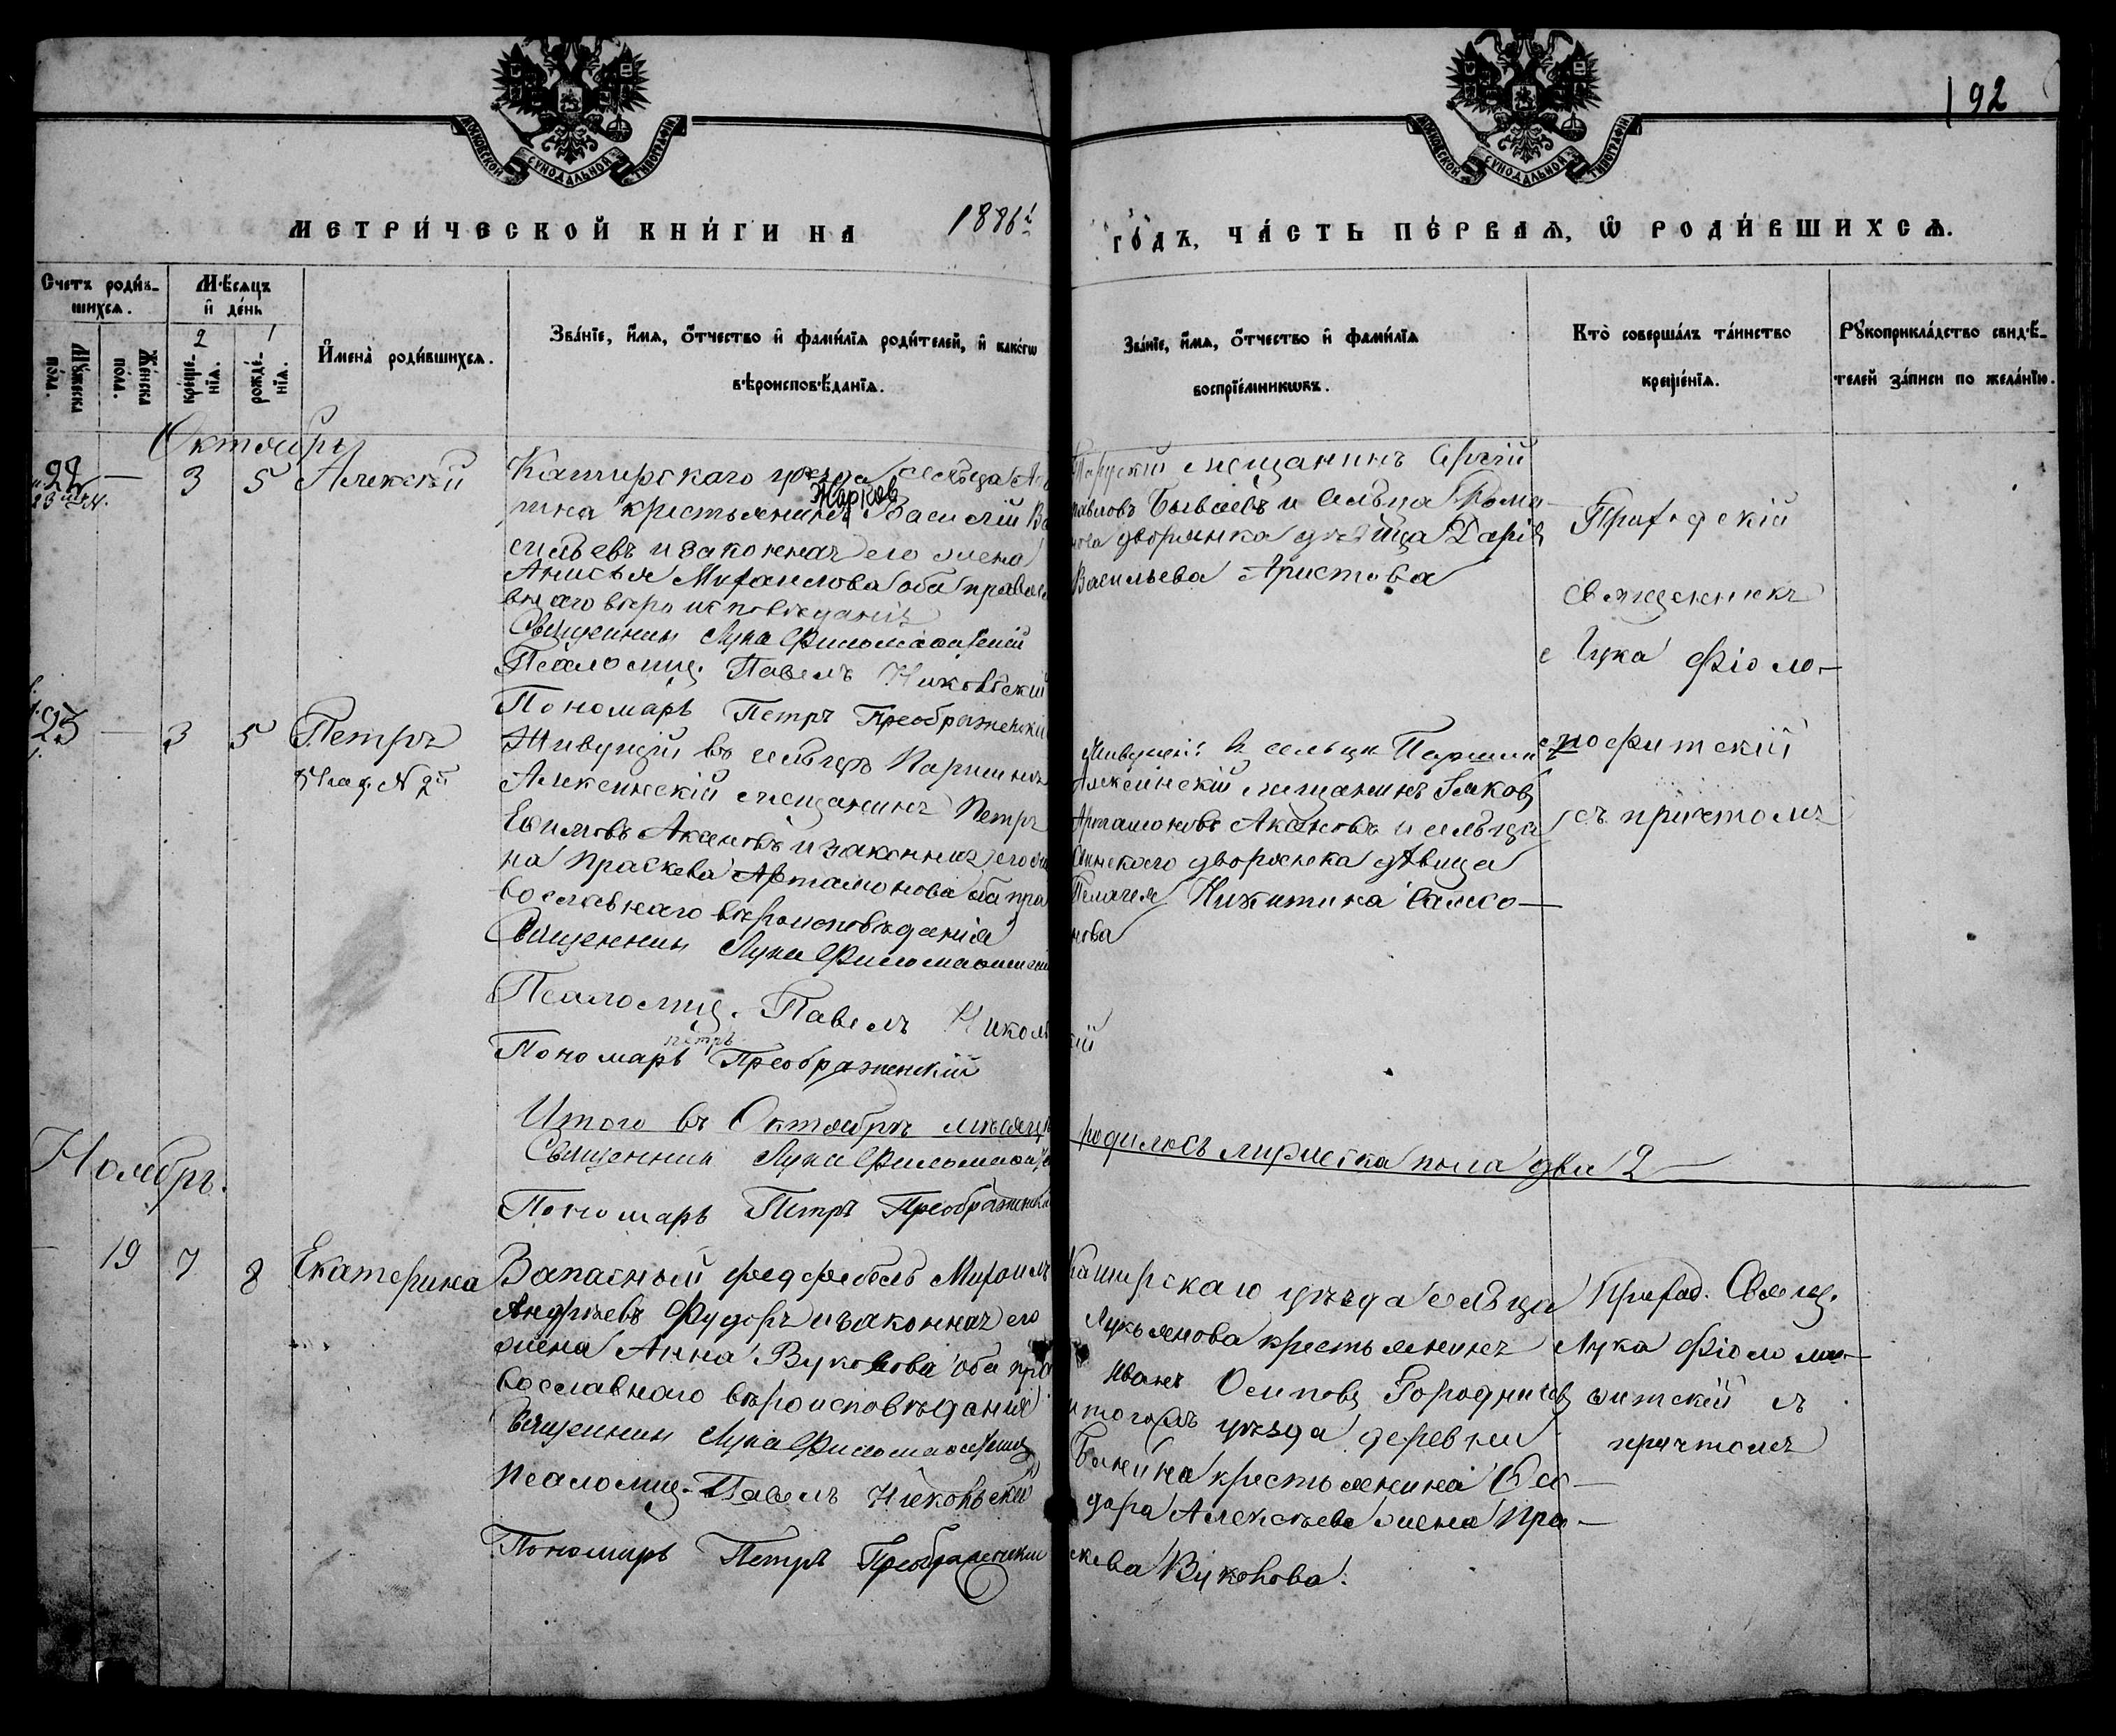 192
МОСКОВСКОЙ СУНОДАЛЬНОЙ ТИПОГРАФІИ
МОСКОВСКОЙ СУНОДАЛЬНОЙ ТИПОГРАФІИ
МЕТРИ́ЧЕСКОЙ КНИ́ГИ НА 1886 г.
ГО́ДЪ, ЧА́СТЬ ПЕ́РВАѦ, Ѡ҆ РОДИ́ВШИХСѦ.
Счетъ роди́в-
шихсѧ.
Мѣ́сѧцъ
и҆ де́нь
Мꙋ́жеска
по́ла.
Же́нска
по́ла.
2
креще́-
нїѧ.
1
рожде́-
нїѧ.
И҆мена̀ роди́вшихсѧ.
Зва́нїе, и҆́мѧ, ѻ҆́тчество и҆ фами́лїѧ роди́телей, и҆ како́гѡ
вѣроисповѣ́данїѧ.
Зва́нїе, и҆́мѧ, ѻ҆́тчество и҆ фами́лїѧ
воспрїе́мникѡвъ.
Кто̀ соверша́лъ та́инство
креще́нїѧ.
Рꙋкоприкла́дство свидѣ́-
телей за́писи по жела́нїю.
Октябрь
22 — 3 5 Алексѣй
Каширскаго уѣзда сельца
Жарков
крестьянинъ Василій Ва
сильевъ и законная его жена
Анисья Михаилова оба правосла
внаго вѣроисповѣданія
Священник Лука Филомафитскій
Псаломщ. Павелъ Никольскій
Пономарь Петръ Преображенскій
Тарускій мещанинъ Сергій
Павловъ Бываевъ и сельца Рома
нова дворянка дѣвица Дарія
Васильева Аристова
Приходскій
священникъ
Лука Фіоло-
мофитскій
съ причтомъ
23 — 3 5 Петръ
Живущій въ сельцѣ Паршинѣ
Алексинскій мещанинъ Петръ
Ефимовъ Аксеновъ и законная его же
на Праскева Артамонова оба пра
вославнаго вѣроисповѣданія
Священник Лука Филомафитскій
Псаломщ. Павелъ Николь
скій
петръ
Пономарь Преображенскій
Живущій въ сельцѣ Паршинѣ
Алексинскій мещанинъ Іаковъ
Артамоновъ Аксеновъ и сельца
дворянка дѣвица
Пелагея Никитина Самсо-
нова
Итого въ Октябрѣ мѣсяцѣ родилось мужеска пола два 2
Священник Лука Филомафитскій
Пономарь Петръ Преображенскій
Ноябрь.
— 19 7 8 Екатерина
Запасный федфебель Михаилъ
Андреевъ Фудоръ и законная его
жена Анна Вуколова оба пра
вославнаго вѣроисповѣданія
Священник Лука Филомафитскій
Псаломщ. Павелъ Никольскій
Пономарь Петръ Преображенскій
Каширскаго уѣзда сельца
Лукьянова крестьянинъ
Иванъ Осиповъ Городничев
и того жъ уѣзда деревни
крестьянина Фео-
дора Алексѣева жена Пра-
скева Вуколова.
Приход. Свящ.
Лука Фіолома-
фитскій съ
причтомъ